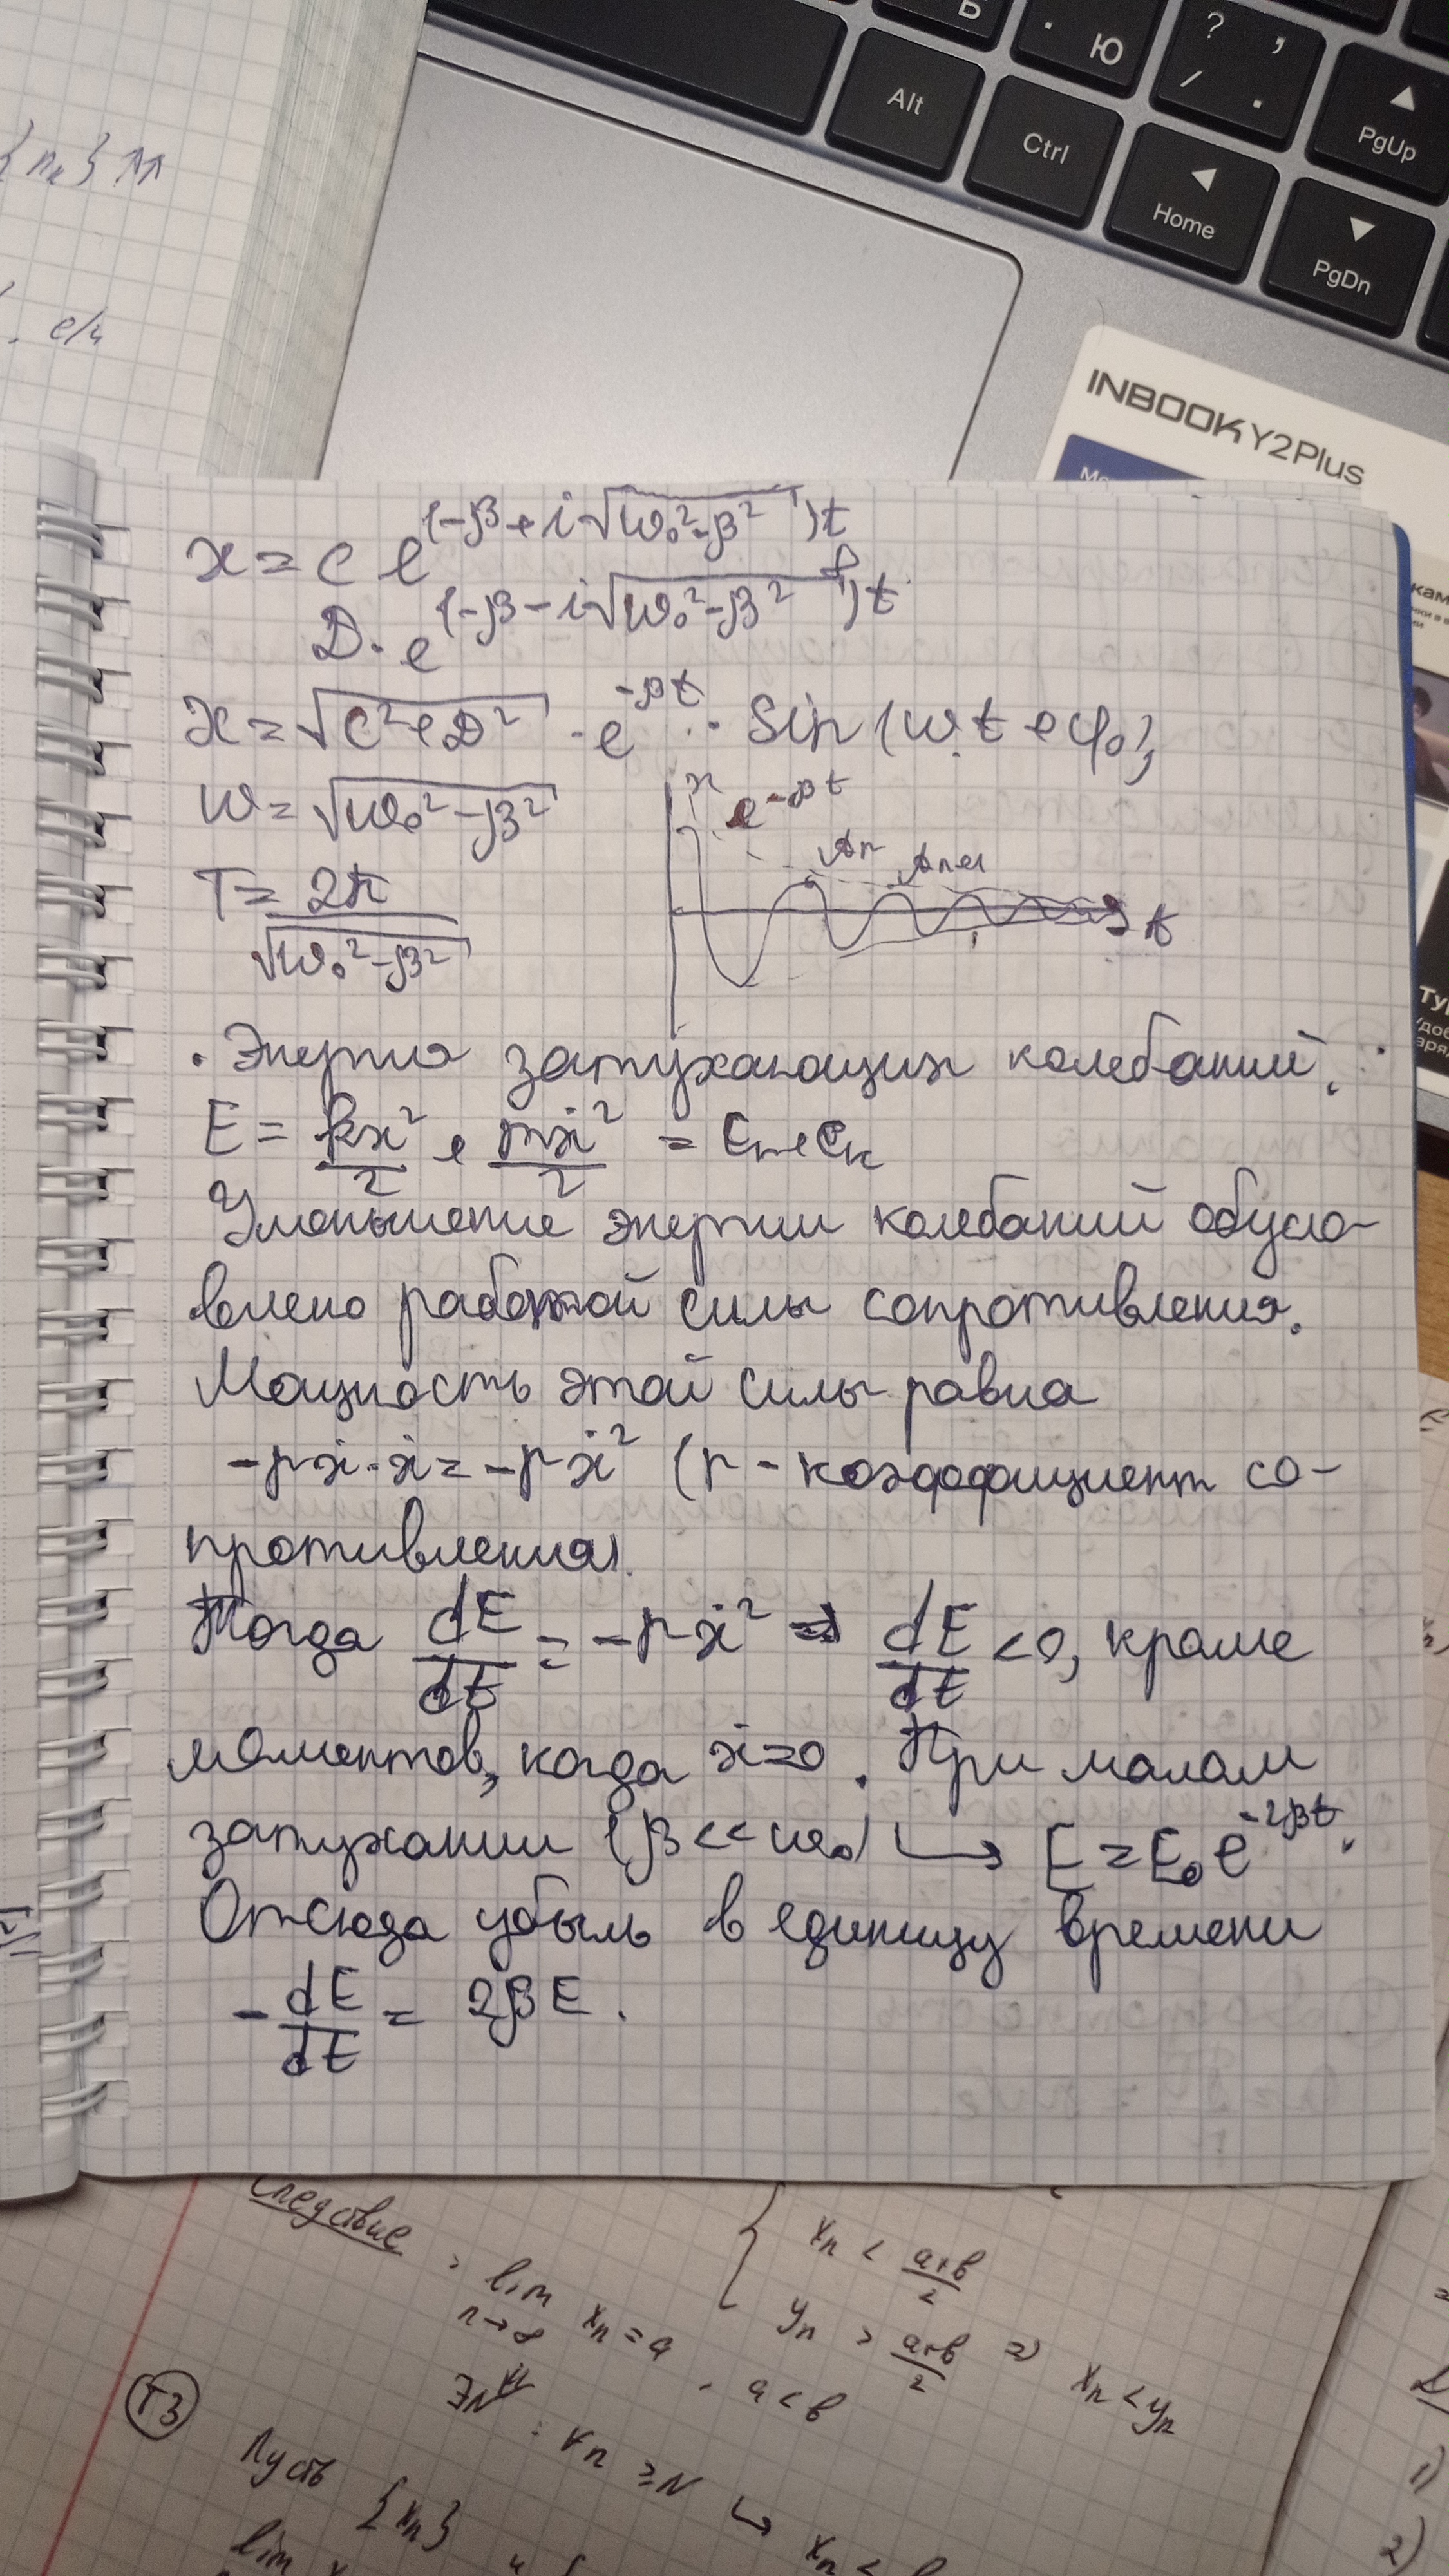 Ь
. Ю
? ,
/ .
Alt
Ctrl
Home
PgUp
PgDn
{n_k} ↑↑
INBOOK Y2Plus
x = C e^{(-β + i√(ω₀² - β²))t} +
D · e^{(-β - i√(ω₀² - β²))t}
x = √(C² + D²) · e^{-βt} · Sin(ωt + φ₀),
ω = √(ω₀² - β²)
x
e^{-βt}
Aₙ
Aₙ₊₁
t
T = 2π / √(ω₀² - β²)
· Энергия затухающих колебаний.
E = kx²/2 + mẋ²/2 = Eп + Eк
Уменьшение энергии колебаний обусло-
влено работой силы сопротивления.
Мощность этой силы равна
-rẋ·ẋ = -rẋ² (r - коэффициент со-
противления).
Тогда dE/dt = -rẋ² ⇒ dE/dt < 0, кроме
моментов, когда ẋ=0. При малом
затухании (β << ω₀) ↪ E = E₀e^{-2βt}.
Отсюда убыль в единицу времени
- dE/dt = 2βE.
Следствие: lim xₙ = a
n→∞
a < b
{ xₙ < (a+b)/2
yₙ > (a+b)/2 ⇒ xₙ < yₙ
Т3
∀n ≥ N ↪ xₙ <
Пусть {xₙ}
lim
1)
2)